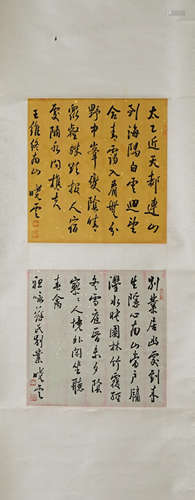 太乙近天都連山
到海隅白雲迴望
合青靄入看無分
野中峯變陰晴
眾壑殊欲投人宿
處隔水問樵夫
王維終南山 曉雲
別業居幽處到來
生隱心南山當戶牖
灃水映園林竹覆經
冬雪庭昏未夕陰
寥々人境外閒坐聽
春禽
祖詠蘇氏別業 曉雲